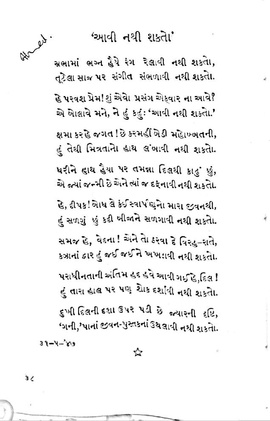 Ahmed.
'આવી નથી શકતો'
સભામાં ભગ્ન હૈયે રંગ રેલાવી નથી શકતો,
તૂટેલા સાજ પર સંગીત સંભળાવી નથી શકતો.
હે પરવશ પ્રેમ! શું એવો પ્રસંગ એકવાર ના આવે?
એ બોલાવે મને, ને હું કહું: 'આવી નથી શકતો.'
ક્ષમા કરજે જગત! છે કરમહીં બેડી મહોબ્બતની,
હું તેથી મિત્રતાનો હાથ લંબાવી નથી શકતો.
ધરીને હાથ હૈયા પર તમન્ના દિલથી કાઢું છું,
એ જ્યાં જન્મી છે એને ત્યાં જ દફનાવી નથી શકતો.
હે, દીપક! બોધ લે કંઈ સ્વાર્પણનો મારા જીવનથી,
હું સળગું છું કદી બીજાને સળગાવી નથી શકતો.
સમજ હે, વેદના! એને તો ઠરવા દે વિરહ-રાતે,
કઝાનાં દ્વાર હું જઈ જઈને ખખડાવી નથી શકતો.
પરાધીનતાની અંતિમ હદ હવે આવી ગઈ હે, દિલ!
હું તારા હાલ પર પણ શોક દર્શાવી નથી શકતો.
દુખી દિલની દશા ઉપર પડી છે જ્યારની દૃષ્ટિ,
'ગની,' પાનાં જીવન-પુસ્તકનાં ઉથલાવી નથી શકતો.
૩૧-૫-'૪૭
૩૮